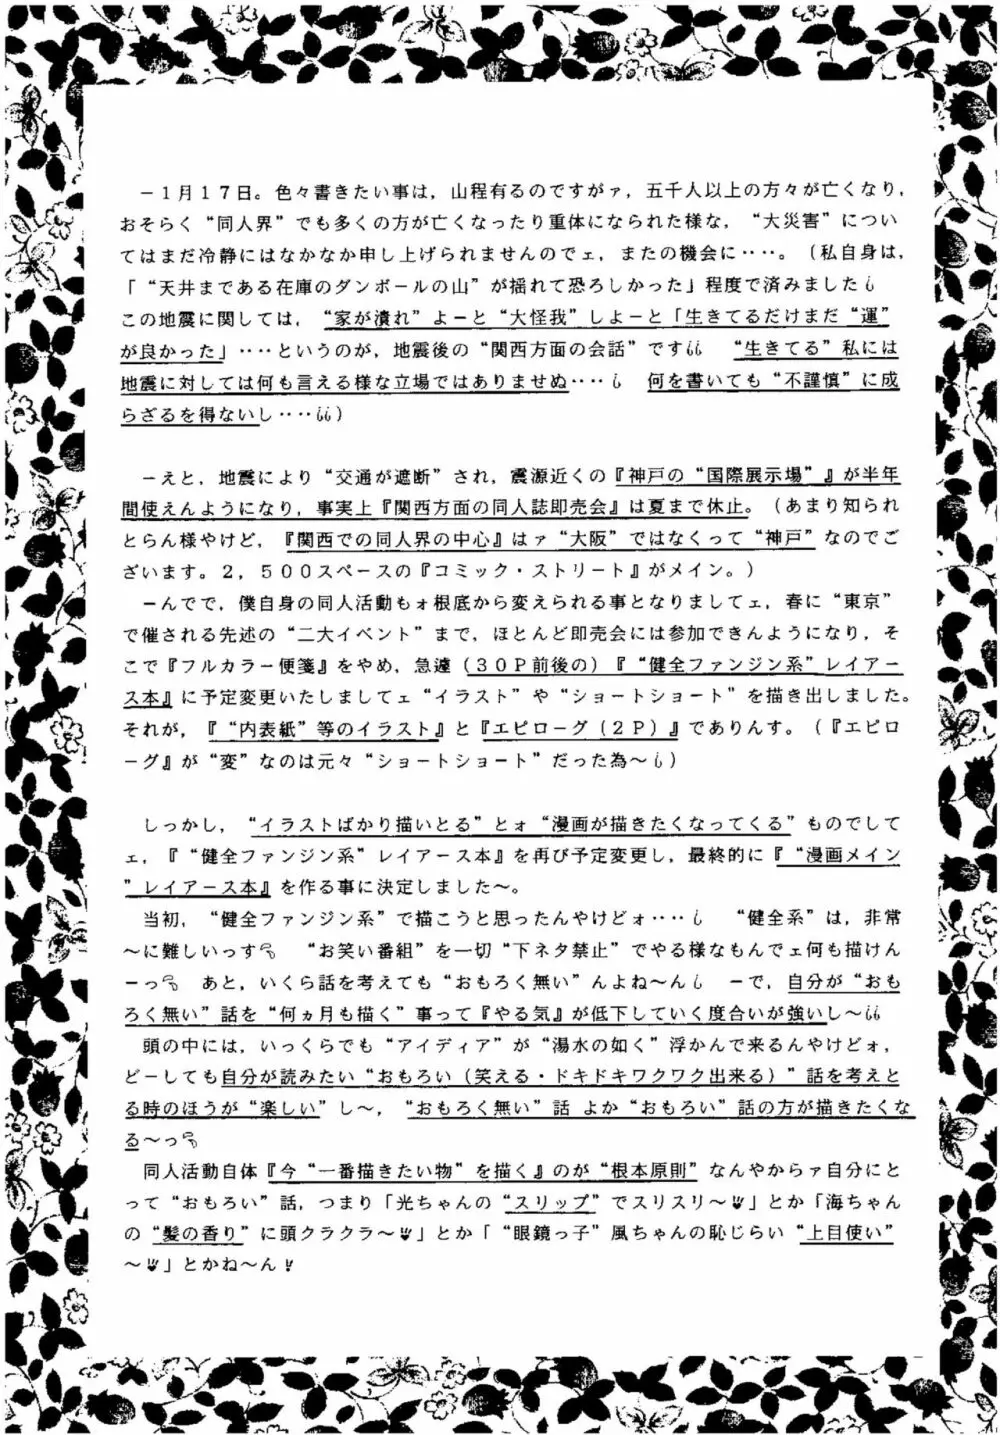 －１月１７日。色々書きたい事は，山程有るのですがァ，五千人以上の方々が亡くなり，
おそらく“同人界”でも多くの方が亡くなったり重体になられた様な，“大災害”につい
てはまだ冷静にはなかなか申し上げられませんのでェ，またの機会に‥‥。（私自身は，
「“天井まである在庫のダンボールの山”が揺れて恐ろしかった」程度で済みました
この地震に関しては，“家が潰れ”よーと“大怪我”しよーと「生きてるだけまだ“運”
が良かった」‥‥というのが，地震後の“関西方面の会話”です　“生きてる”私には
地震に対しては何も言える様な立場ではありませぬ‥‥　何を書いても“不謹慎”に成
らざるを得ないし‥‥）
－えと，地震により“交通が遮断”され，震源近くの『神戸の“国際展示場”』が半年
間使えんようになり，事実上『関西方面の同人誌即売会』は夏まで休止。（あまり知られ
とらん様やけど，『関西での同人界の中心』はァ“大阪”ではなくって“神戸”なのでご
ざいます。２，５００スペースの『コミック・ストリート』がメイン。）
－んでで，僕自身の同人活動もォ根底から変えられる事となりましてェ，春に“東京”
で催される先述の“二大イベント”まで，ほとんど即売会には参加できんようになり，そ
こで『フルカラー便箋』をやめ，急遽（３０Ｐ前後の）『“健全ファンジン系”レイアー
ス本』に予定変更いたしましてェ“イラスト”や“ショートショート”を描き出しました。
それが，『“内表紙”等のイラスト』と『エピローグ（２Ｐ）』でありんす。（『エピロ
ーグ』が“変”なのは元々“ショートショート”だった為～）
しっかし，“イラストばかり描いとる”とォ“漫画が描きたくなってくる”ものでして
ェ，『“健全ファンジン系”レイアース本』を再び予定変更し，最終的に『“漫画メイン
”レイアース本』を作る事に決定しました～。
当初，“健全ファンジン系”で描こうと思ったんやけどォ‥‥　“健全系”は，非常
～に難しいっす　“お笑い番組”を一切“下ネタ禁止”でやる様なもんでェ何も描けん
ーっ　あと，いくら話を考えても“おもろく無い”んよね～ん　ーで，自分が“おも
ろく無い”話を“何ヵ月も描く”事って『やる気』が低下していく度合いが強いし～
頭の中には，いっくらでも“アイディア”が“湯水の如く”浮かんで来るんやけどォ，
どーしても自分が読みたい“おもろい（笑える・ドキドキワクワク出来る）”話を考えと
る時のほうが“楽しい”し～，“おもろく無い”話 よか“おもろい”話の方が描きたくな
る～っ
同人活動自体『今“一番描きたい物”を描く』のが“根本原則”なんやからァ自分にと
って“おもろい”話，つまり「光ちゃんの“スリップ”でスリスリ～」とか「海ちゃん
の“髪の香り”に頭クラクラ～」とか「“眼鏡っ子”風ちゃんの恥じらい“上目使い”
～」とかね～ん！